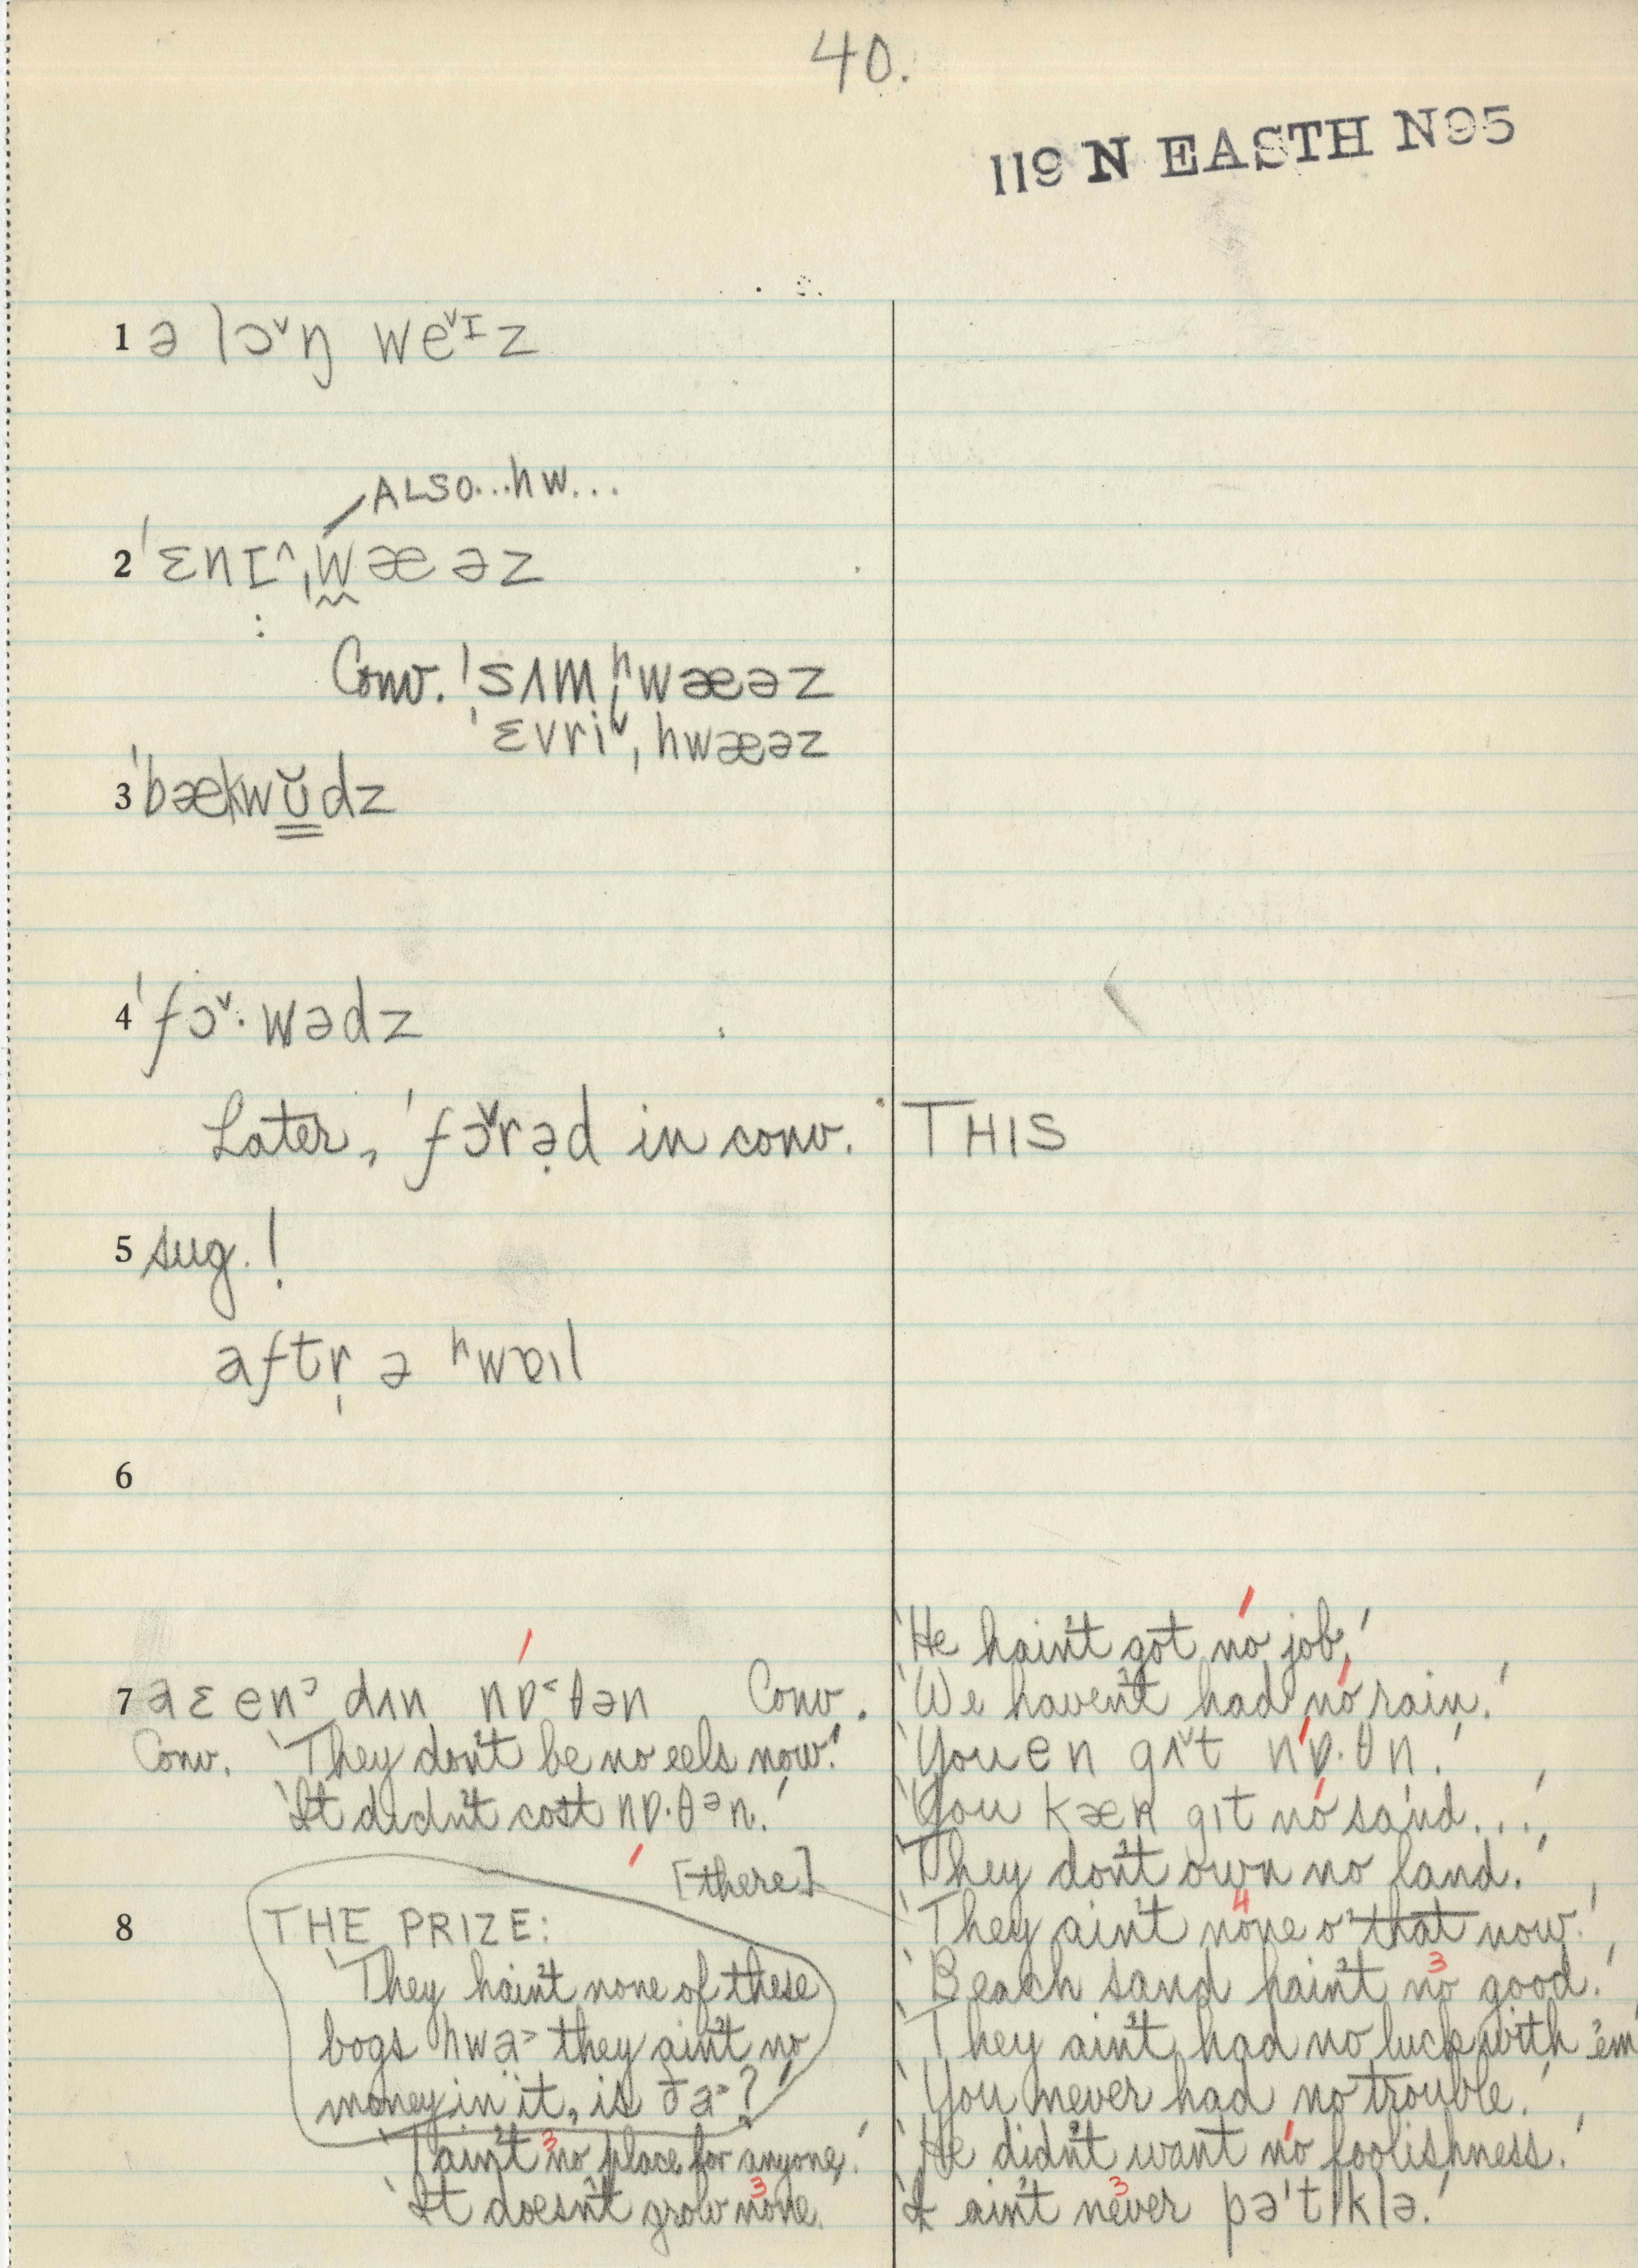 40.
119 N EASTH N95
1 ə lɔ˅ŋ we˅ɪz
ALSO...hw...
2 ˈɛnɪ^ˌwæəz
Conv. ˈsʌmˌʰwæəz
ˈɛvri˅ˌhwæəz
3 ˈbækwʊ̆dz
4 ˈfɔ˅·wədz
Later, ˈfɔ˅rə̣d in conv. THIS
5 sug.!
aftr̩ ə ʰwɐɪl
6
'He hain't got no job.'
7 aɛ enᵓ dʌn nɒ˂θən Conv. 'We haven't had no rain.'
Conv. 'They don't be no eels now.' 'You en gɪ˅t nɒ·θn.'
'It didn't cost nɒ·θᵊn.' 'You kæn gɪt no sand...'
[there] 'They don't own no land.'
8 THE PRIZE: 'They ain't none o' that now.'
4
'They hain't none of these 'Beach sand hain't no good.'
3
bogs hwa> they ain't no 'They ain't had no luck with 'em
money in it, is ða>?' 'You never had no trouble.'
'T ain't no place for anyone.' 'He didn't want no foolishness.'
3
'It doesn't grow none. 'It ain't never pəˈtɪklə.'
3 3